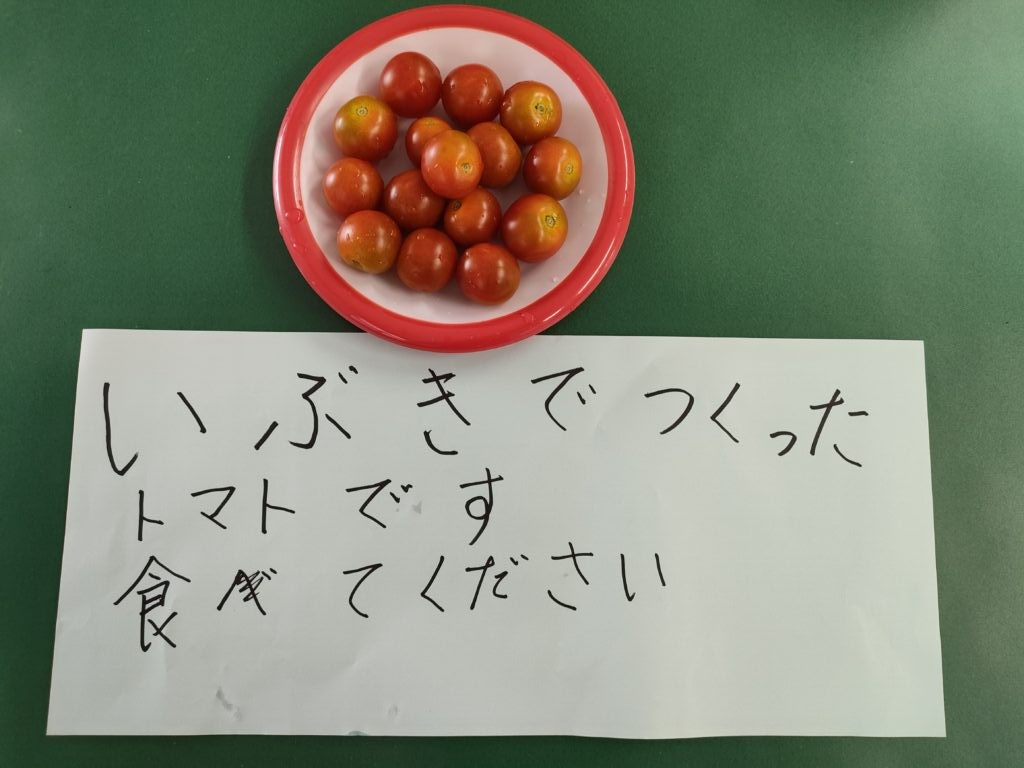 いぶきでつくった
トマトです
食べてください